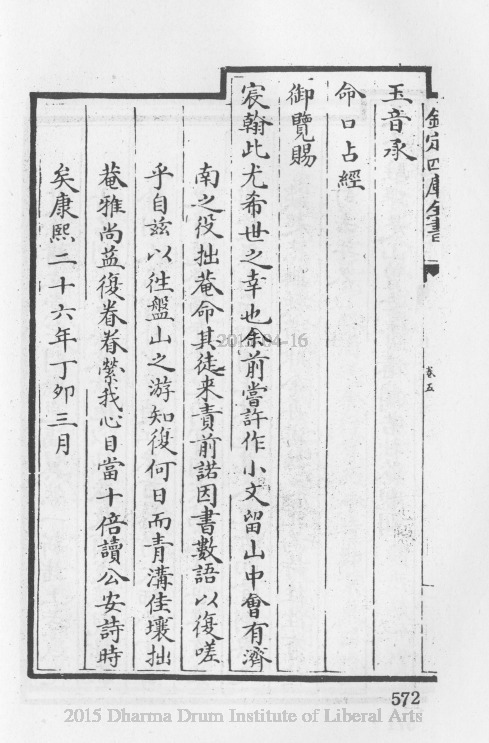 欽定四庫全書
卷五
玉音承
命口占經
御覽賜
宸翰此尤希世之幸也余前嘗許作小文留山中會有濟
南之役拙菴命其徒来責前諾因書數語以復嗟
乎自兹以徃盤山之游知復何日而青溝佳壤拙
菴雅尚益復眷眷縈我心目當十倍讀公安詩時
矣康熙二十六年丁卯三月
2015-04-16
572
2015 Dharma Drum Institute of Liberal Arts